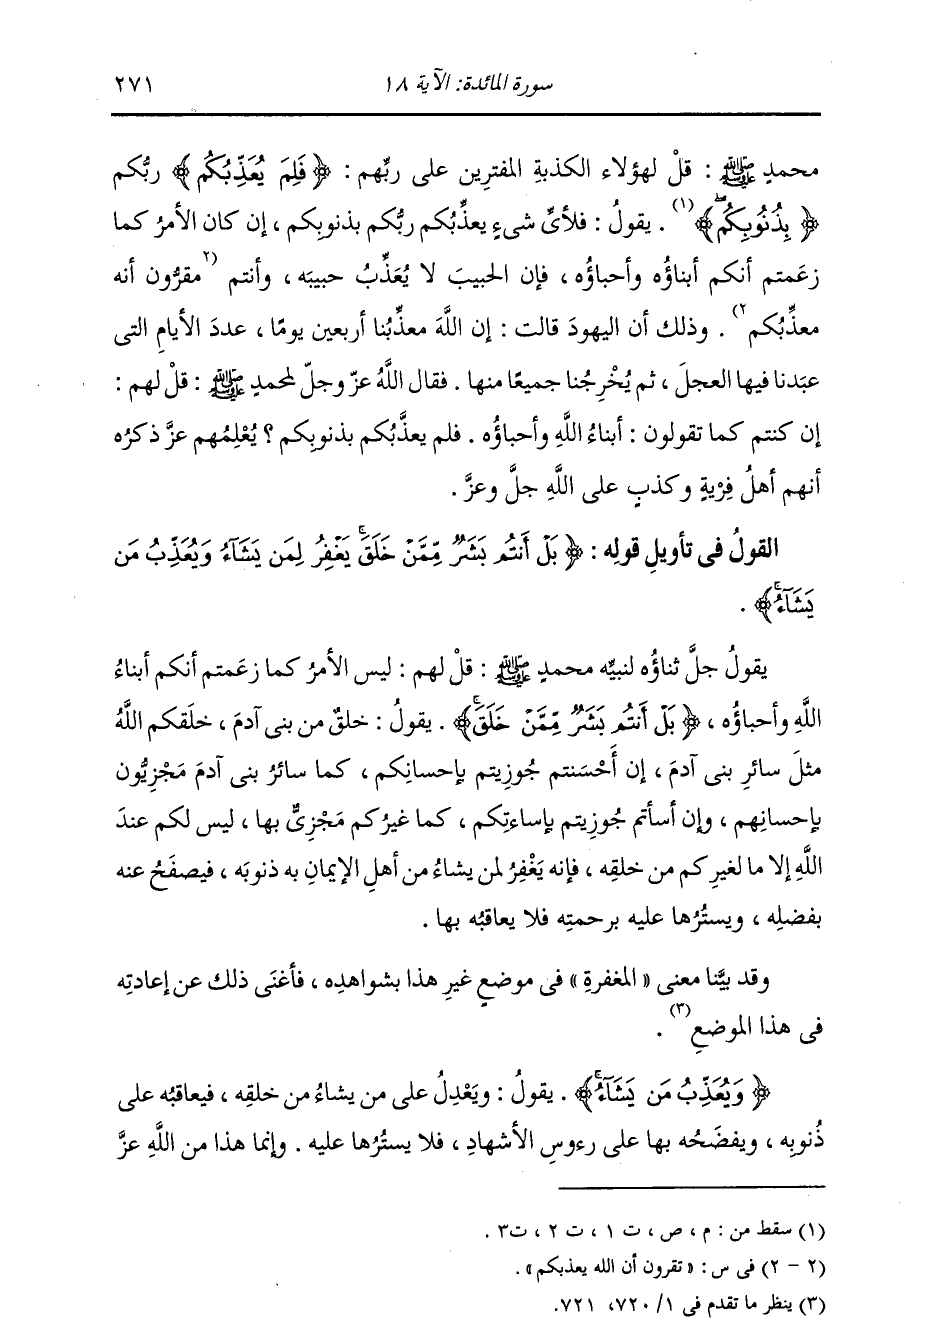 سورة المائدة: الآية ١٨ ٢٧١
محمدٍ ﷺ : قلْ لهؤلاء الكذبةِ المفترِين على ربِّهم : ﴿ فَلِمَ يُعَذِّبُكُم ﴾ ربُّكم
﴿ بِذُنُوبِكُمۖ ﴾(١) . يقولُ : فلأىِّ شىءٍ يعذِّبُكم ربُّكم بذنوبِكم ، إن كان الأمرُ كما
زعَمتم أنكم أبناؤُه وأحباؤُه ، فإن الحبيبَ لا يُعَذِّبُ حبيبَه ، وأنتم (٢مقرُّون أنه
معذِّبُكم٢) . وذلك أن اليهودَ قالت : إن اللَّهَ معذِّبُنا أربعين يومًا ، عددَ الأيامِ التى
عبَدنا فيها العجلَ ، ثم يُخْرِجُنا جميعًا منها . فقال اللَّهُ عزّ وجلّ لمحمدٍ ﷺ : قلْ لهم :
إن كنتم كما تقولون : أبناءُ اللَّهِ وأحباؤُه . فلم يعذَّبُكم بذنوبِكم ؟ يُعْلِمُهم عزَّ ذكرُه
أنهم أهلُ فِرْيةٍ وكذبٍ على اللَّهِ جلَّ وعزَّ .
القولُ فى تأويلِ قولِه : ﴿ بَلْ أَنتُم بَشَرٌ مِّمَّنْ خَلَقَۚ يَغْفِرُ لِمَن يَشَآءُ وَيُعَذِّبُ مَن
يَشَآءُۚ ﴾ .
يقولُ جلَّ ثناؤُه لنبيِّه محمدٍ ﷺ : قلْ لهم : ليس الأمرُ كما زعَمتم أنكم أبناءُ
اللَّهِ وأحباؤُه ، ﴿ بَلْ أَنتُم بَشَرٌ مِّمَّنْ خَلَقَۚ ﴾ . يقولُ : خلقٌ من بنى آدمَ ، خلَقكم اللَّهُ
مثلَ سائرِ بنى آدمَ ، إن أَحْسَنتم جُوزِيتم بإحسانِكم ، كما سائرُ بنى آدمَ مَجْزِيُّون
بإحسانِهم ، وإن أسأتم جُوزِيتم بإساءتِكم ، كما غيرُكم مَجْزِىٌّ بها ، ليس لكم عندَ
اللَّهِ إلا ما لغيرِكم من خلقِه ، فإنه يَغْفِرُ لمن يشاءُ من أهلِ الإيمانِ به ذنوبَه ، فيصفَحُ عنه
بفضلِه ، ويستُرُها عليه برحمتِه فلا يعاقبُه بها .
وقد بيَّنا معنى « المغفرةِ » فى موضعٍ غيرِ هذا بشواهدِه ، فأغنَى ذلك عن إعادتِه
فى هذا الموضعِ(٣) .
﴿ وَيُعَذِّبُ مَن يَشَآءُۚ ﴾ . يقولُ : ويَعْدِلُ على من يشاءُ من خلقِه ، فيعاقبُه على
ذُنوبِه ، ويفضَحُه بها على رءوسِ الأشهادِ ، فلا يستُرُها عليه . وإنما هذا من اللَّهِ عزَّ
(١) سقط من : م ، ص ، ت ١ ، ت ٢ ، ت٣ .
(٢ - ٢) فى س : « تقرون أن الله يعذبكم » .
(٣) ينظر ما تقدم فى ١/ ٧٢٠، ٧٢١.